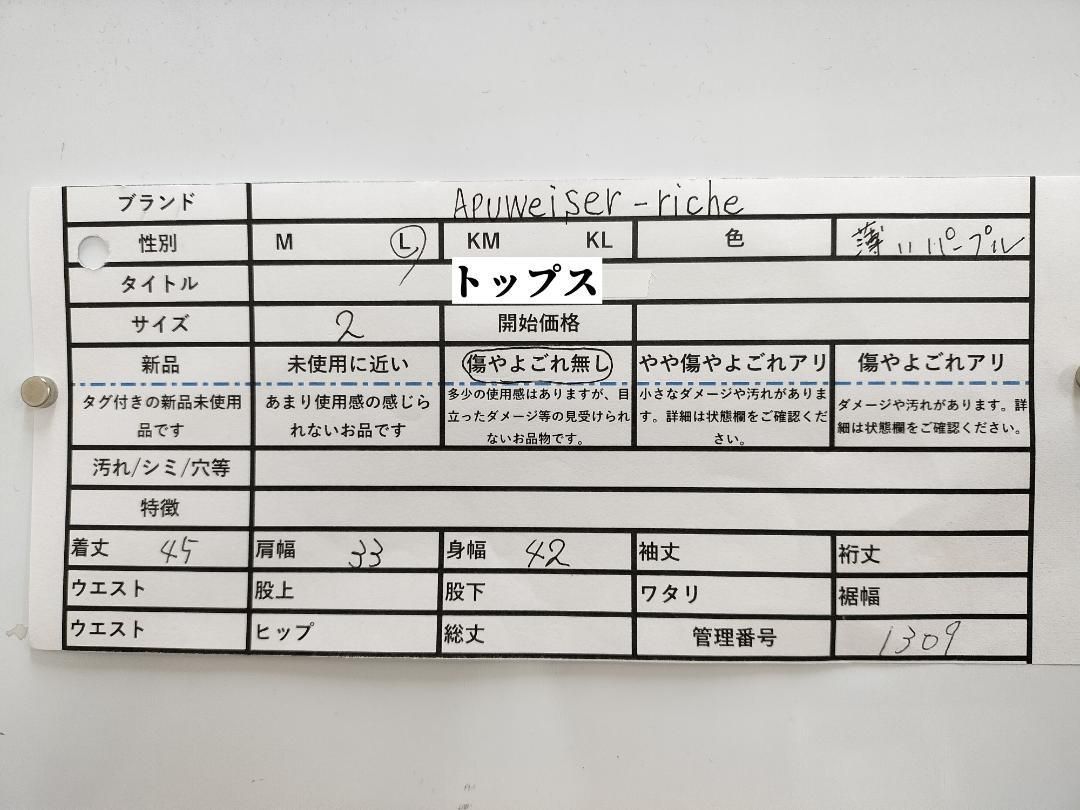 ブランド Apuweiser-riche
性別 M L KM KL 色 薄いパープル
タイトル トップス
サイズ 2 開始価格
新品 未使用に近い 傷やよごれ無し やや傷やよごれアリ 傷やよごれアリ
タグ付きの新品未使用品です あまり使用感の感じられないお品です 多少の使用感はありますが、目立ったダメージ等の見受けられないお品物です。 小さなダメージや汚れがあります。詳細は状態欄をご確認ください。 ダメージや汚れがあります。詳細は状態欄をご確認ください。
汚れ/シミ/穴等
特徴
着丈 45 肩幅 33 身幅 42 袖丈 裄丈
ウエスト 股上 股下 ワタリ 裾幅
ウエスト ヒップ 総丈 管理番号 1309